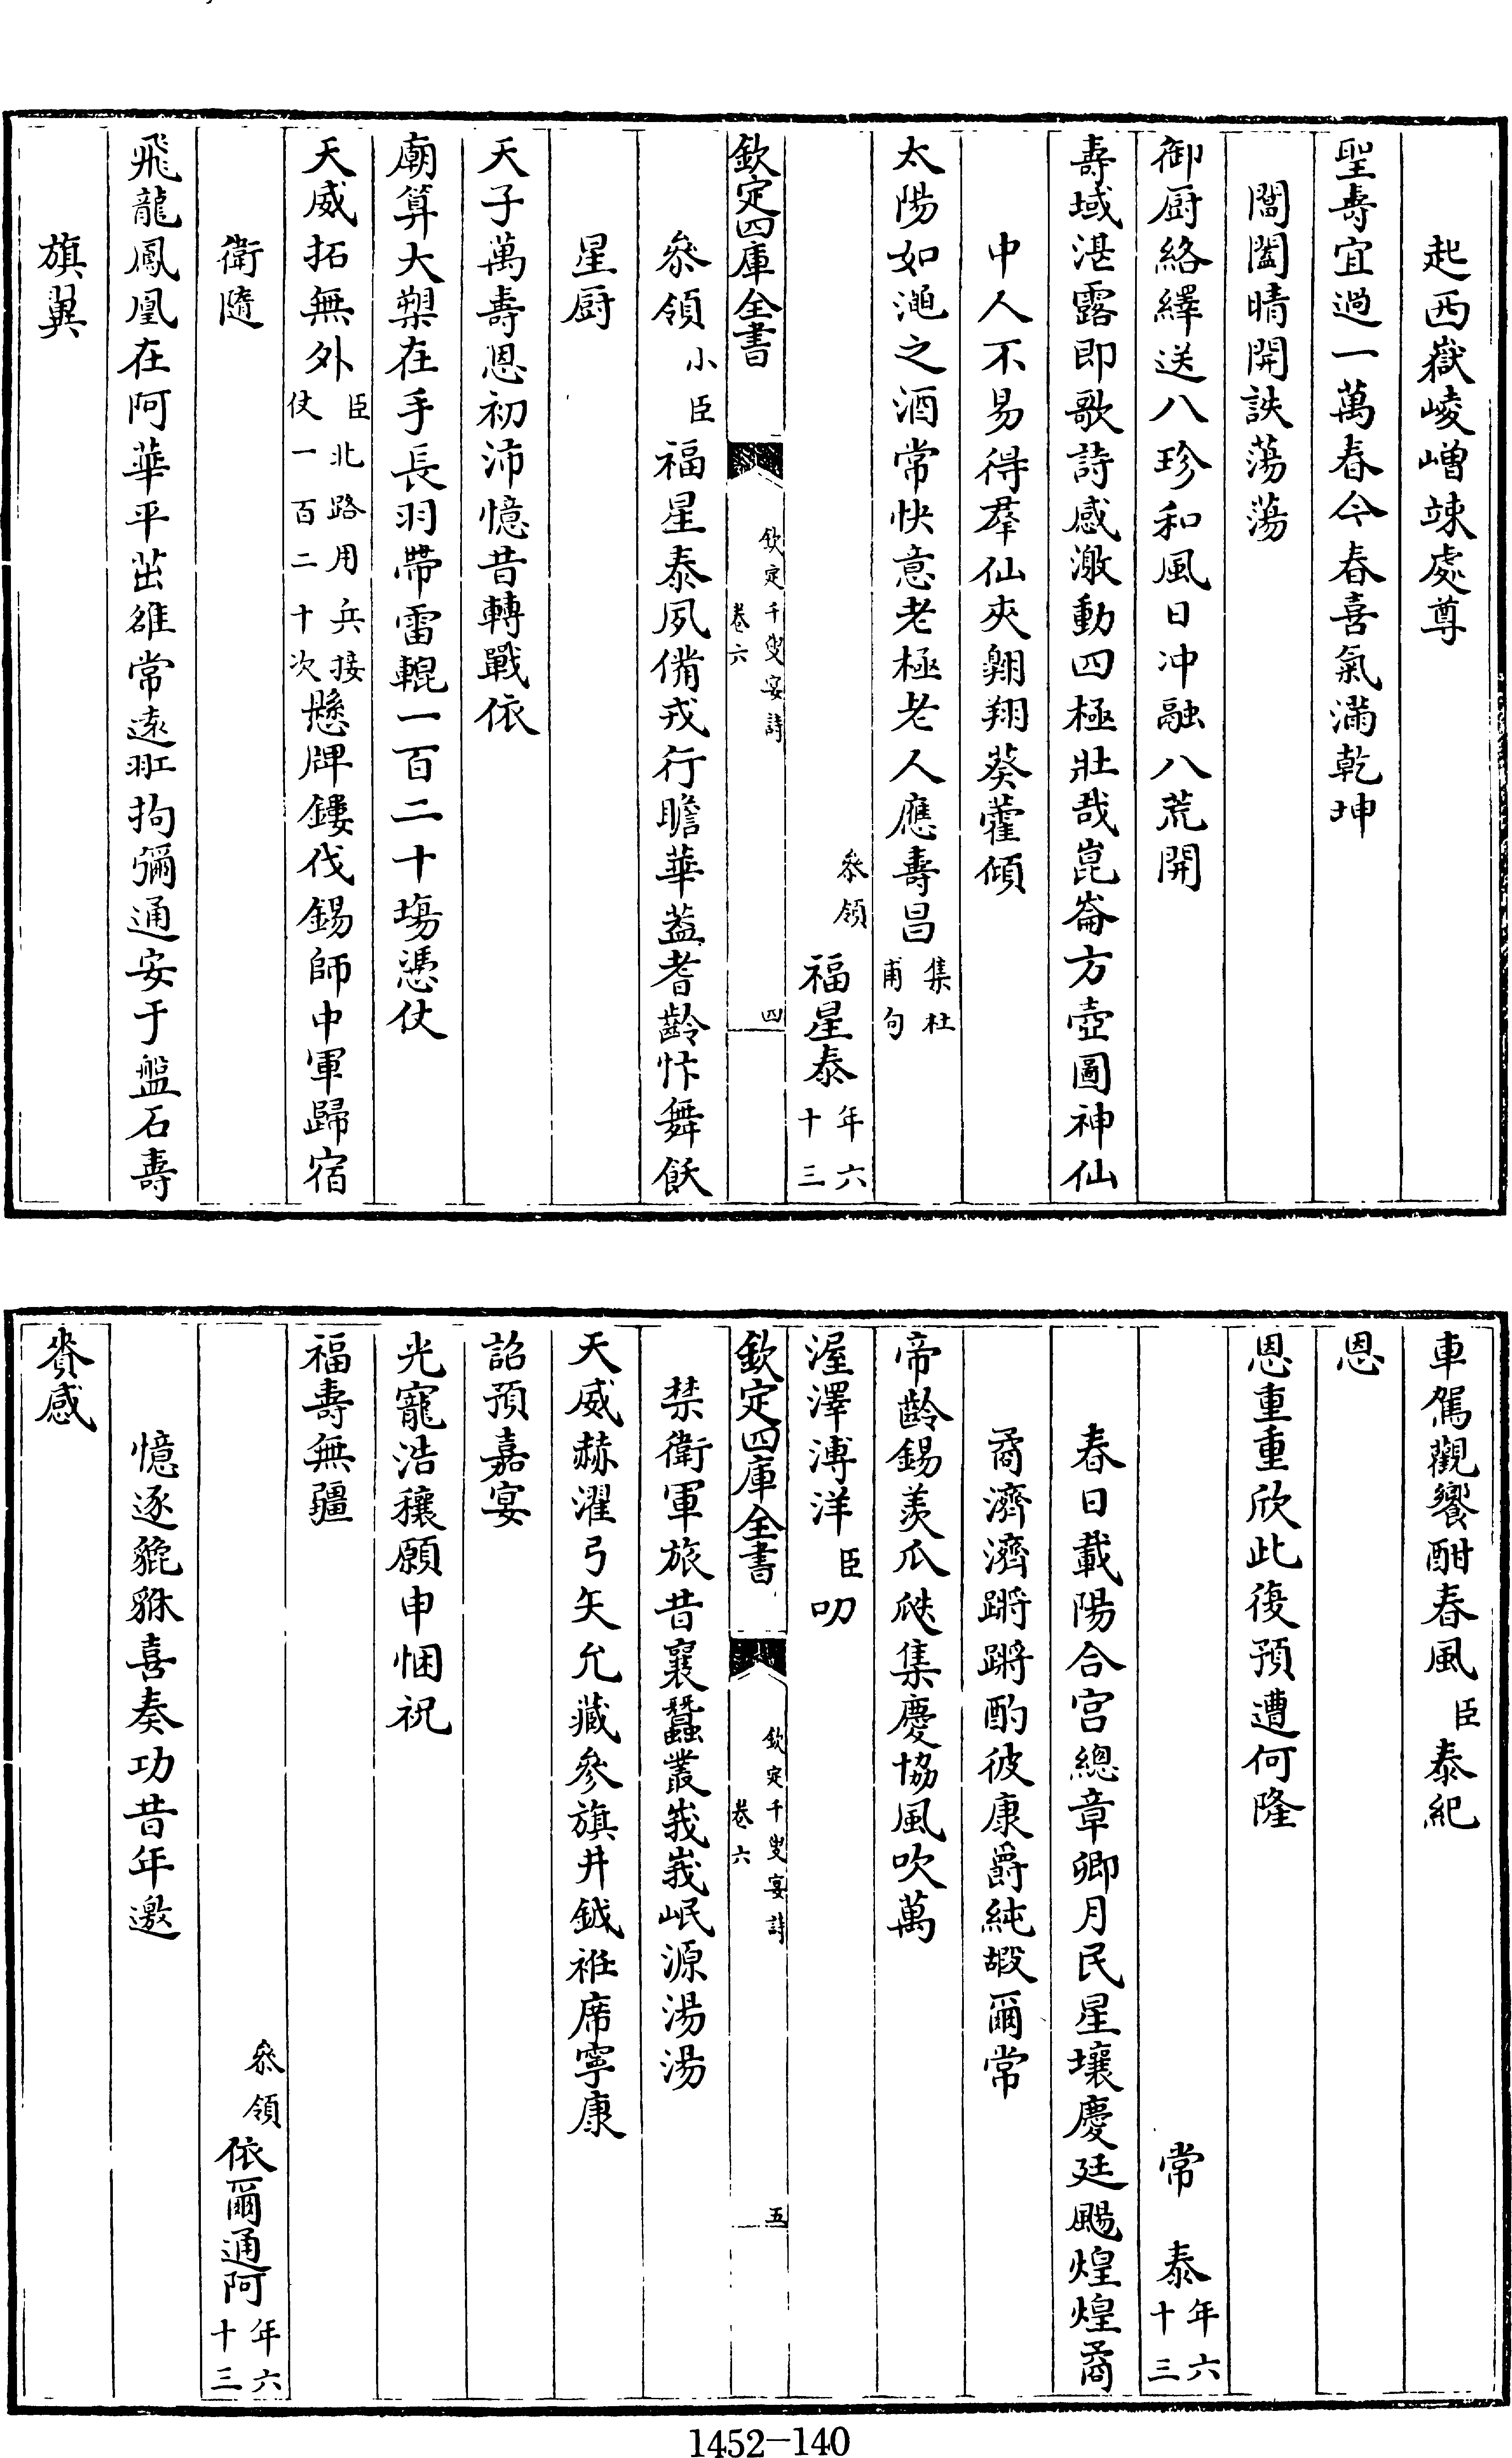 起西嶽崚嶒竦處尊
聖壽宜過一萬春今春喜氣滿乾坤
閶闔晴開詄蕩蕩
御厨絡繹送八珍和風日冲融八荒開
壽域湛露即歌詩感激動四極壯哉崑崙方壺圖神仙
中人不易得羣仙夾翺翔葵藿傾
太陽如澠之酒常快意老極老人應壽昌集杜甫句
叅領福星泰年六十三
欽定四庫全書
欽定千叟宴詩
卷六
四
叅領小臣福星泰夙備戎行瞻華葢耆齡忭舞飫
星厨
天子萬壽恩初沛憶昔轉戰依
廟算大槊在手長羽帶雷輥一百二十塲憑仗
天威拓無外臣北路用兵接仗一百二十次懸牌鏤伐錫師中軍歸宿
衛隨
飛龍鳳凰在阿華平茁雒常逺羾拘彌通安于盤石壽
旗翼
車駕觀饗酣春風臣泰紀
恩
恩重重欣此復預遭何隆
常泰年六十三
春日載陽合宮總章卿月民星壤慶廷颺煌煌矞
矞濟濟蹡蹡酌彼康爵純嘏爾常
帝齡錫羨瓜瓞集慶協風吹萬
渥澤溥洋臣叨
欽定四庫全書
欽定千叟宴詩
卷六
五
禁衛軍旅昔襄蠶叢峩峩岷源湯湯
天威赫濯弓矢允藏參旗井鉞袵席寧康
詔預嘉宴
光寵浩穰願申悃祝
福壽無疆
叅領依爾通阿年六十三
憶逐貔貅喜奏功昔年邀
賚感
1452-140